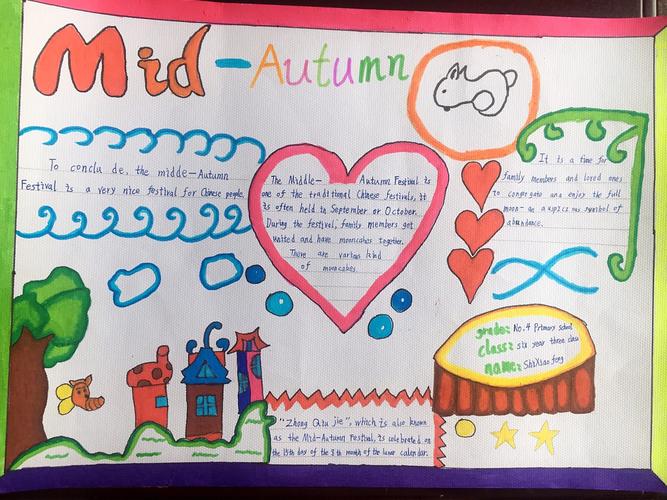 Mid-Autumn
To conclu de, the midde-Autumn
Festival is a very nice festival for Chinese people.
The Middle- Autumn Festival is
one of the traditional Chinese festivals, it
is often held in September or October.
During the festival, family members get
united and have mooncakes together.
There are various kind
of mooncakes.
It is a time for
family members and loved ones
to congregate and enjoy the full
moon- an auspicious symbol of
abundance.
grade: No.4 Primary school
class: six year three class
name: ShiXiao fong
"Zhong Qiu jie", which is also known
as the Mid-Autumn Festival, is celebrated on
the 15th day of the 8th month of the lunar calendar.